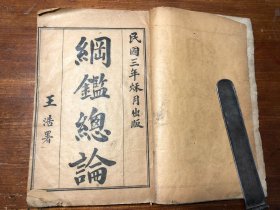 民國三年秌月出版
綱鑑總論
王浩署